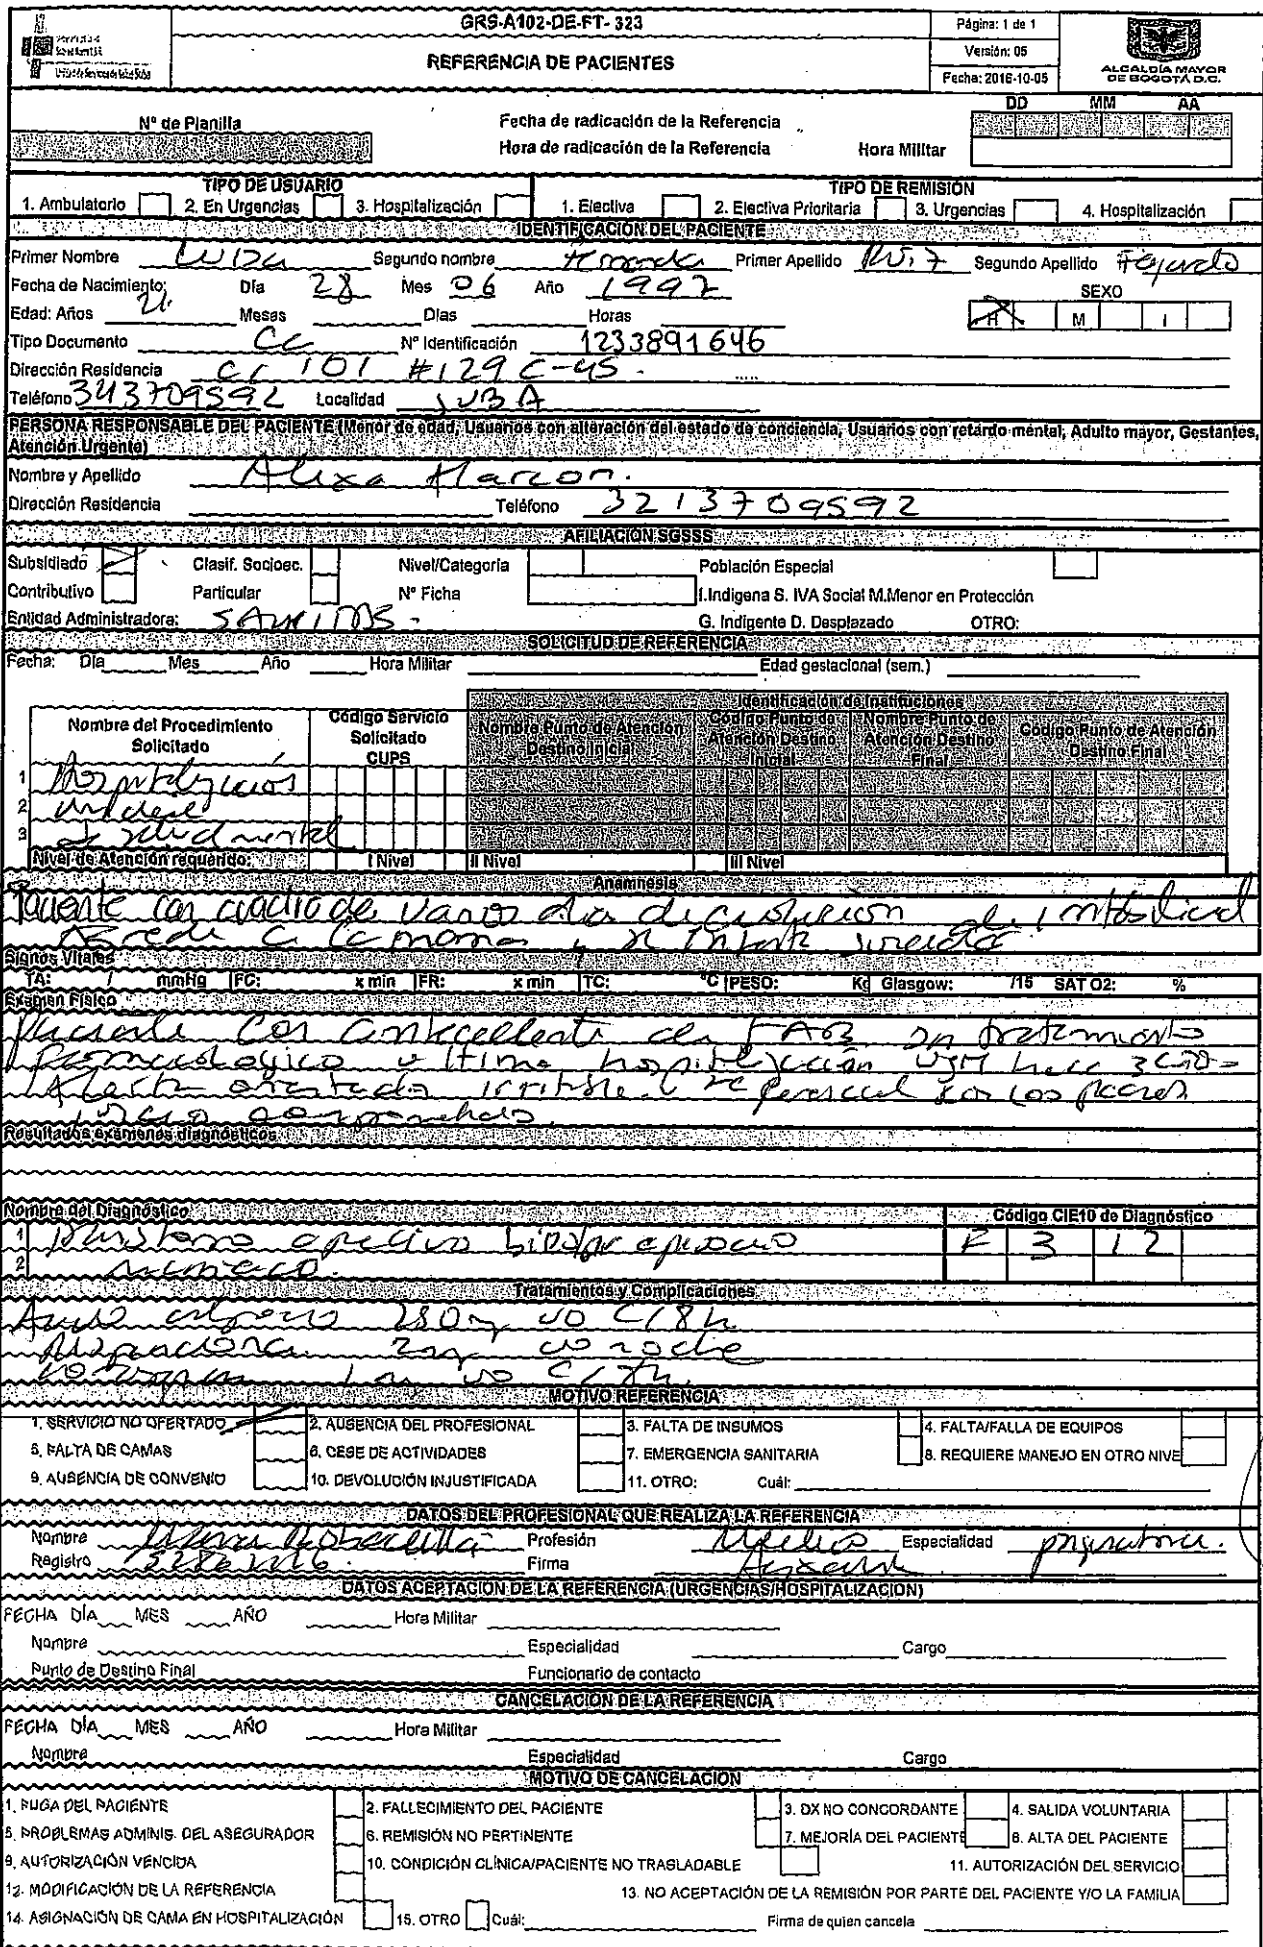 GRS-A102-DE-FT-323
REFERENCIA DE PACIENTES
Página: 1 de 1
Versión: 05
Fecha: 2016-10-05
ALCALDÍA MAYOR
DE BOGOTÁ D.C.
Nº de Planilla
Fecha de radicación de la Referencia
DD MM AA
Hora de radicación de la Referencia Hora Militar
TIPO DE USUARIO TIPO DE REMISIÓN
1. Ambulatorio 2. En Urgencias 3. Hospitalización 1. Electiva 2. Electiva Prioritaria 3. Urgencias 4. Hospitalización
IDENTIFICACIÓN DEL PACIENTE
Primer Nombre Segundo nombre Primer Apellido Ruiz Segundo Apellido
Fecha de Nacimiento: Día 28 Mes 06 Año 1997
SEXO
Edad: Años 21 Meses Días Horas H M I
Tipo Documento CC Nº Identificación 1233891646
Dirección Residencia Cr 101 #129 C-45
Teléfono 343709592 Localidad SUBA
PERSONA RESPONSABLE DEL PACIENTE (Menor de edad, Usuarios con alteración del estado de conciencia, Usuarios con retardo mental, Adulto mayor, Gestantes,
Atención Urgente)
Nombre y Apellido Alixa
Dirección Residencia Teléfono 3213709592
AFILIACIÓN SGSSS
Subsidiado Clasif. Socioec. Nivel/Categoría Población Especial
Contributivo Particular Nº Ficha I.Indigena S. IVA Social M.Menor en Protección
Entidad Administradora: G. Indigente D. Desplazado OTRO:
SOLICITUD DE REFERENCIA
Fecha: Día Mes Año Hora Militar Edad gestacional (sem.)
Identificación de Instituciones
Nombre del Procedimiento Solicitado
Código Servicio Solicitado CUPS
Nombre Punto de Atención Destino Inicial
Código Punto de Atención Destino Inicial
Nombre Punto de Atención Destino Final
Código Punto de Atención Destino Final
1 Hospitalización
2 unidad
3 salud mental
Nivel de Atención requerido: I Nivel II Nivel III Nivel
Anamnesis
Paciente con cuadro de varios dias de evolución de
Agrede a la mama y
Signos Vitales
TA: / mmHg FC: x min FR: x min TC: °C PESO: Kg Glasgow: /15 SAT O2: %
Examen Físico
Paciente con antecedente de TAB en tratamiento
Farmacologico ultima hospitalización USM hace
Alerta orientada irritable
Resultados exámenes diagnósticos
Nombre del Diagnóstico Código CIE10 de Diagnóstico
1 Trastorno afectivo bipolar episodio F 3 1 2
2
Tratamientos y Complicaciones
Acido valproico 250 mg vo c/8h
2mg vo noche
vo
MOTIVO REFERENCIA
1. SERVICIO NO OFERTADO 2. AUSENCIA DEL PROFESIONAL 3. FALTA DE INSUMOS 4. FALTA/FALLA DE EQUIPOS
5. FALTA DE CAMAS 6. CESE DE ACTIVIDADES 7. EMERGENCIA SANITARIA 8. REQUIERE MANEJO EN OTRO NIVE
9. AUSENCIA DE CONVENIO 10. DEVOLUCIÓN INJUSTIFICADA 11. OTRO: Cuál:
DATOS DEL PROFESIONAL QUE REALIZA LA REFERENCIA
Nombre Profesión Medico Especialidad
Registro Firma
DATOS ACEPTACIÓN DE LA REFERENCIA (URGENCIAS/HOSPITALIZACIÓN)
FECHA DÍA MES AÑO Hora Militar
Nombre Especialidad Cargo
Punto de Destino Final Funcionario de contacto
CANCELACIÓN DE LA REFERENCIA
FECHA DÍA MES AÑO Hora Militar
Nombre Especialidad Cargo
MOTIVO DE CANCELACIÓN
1. FUGA DEL PACIENTE 2. FALLECIMIENTO DEL PACIENTE 3. DX NO CONCORDANTE 4. SALIDA VOLUNTARIA
5. PROBLEMAS ADMINIS. DEL ASEGURADOR 6. REMISIÓN NO PERTINENTE 7. MEJORÍA DEL PACIENTE 8. ALTA DEL PACIENTE
9. AUTORIZACIÓN VENCIDA 10. CONDICIÓN CLÍNICA/PACIENTE NO TRASLADABLE 11. AUTORIZACIÓN DEL SERVICIO
12. MODIFICACIÓN DE LA REFERENCIA 13. NO ACEPTACIÓN DE LA REMISIÓN POR PARTE DEL PACIENTE Y/O LA FAMILIA
14. ASIGNACIÓN DE CAMA EN HOSPITALIZACIÓN 15. OTRO Cuál: Firma de quien cancela